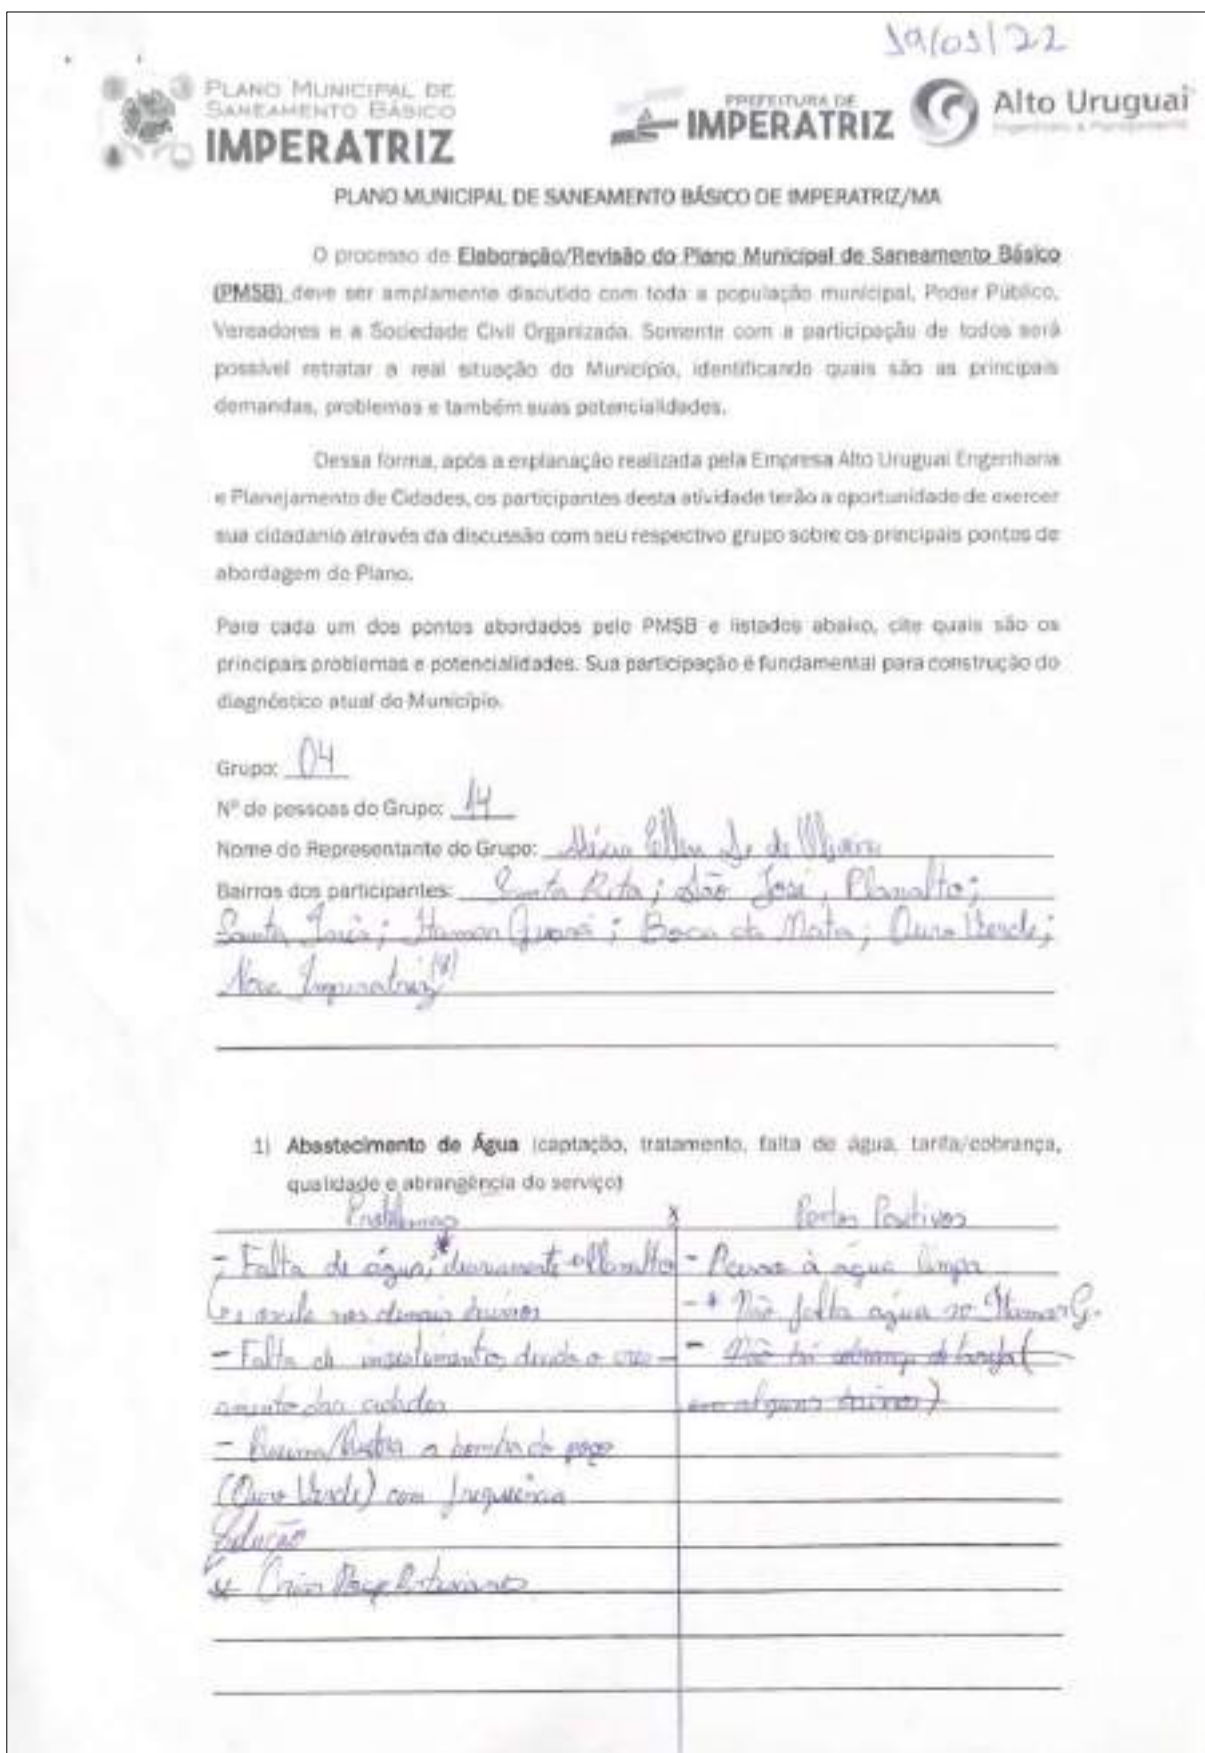 19/01/22
PLANO MUNICIPAL DE
SANEAMENTO BÁSICO
IMPERATRIZ
PREFEITURA DE
IMPERATRIZ
Alto Uruguai
Engenharia & Planejamento
PLANO MUNICIPAL DE SANEAMENTO BÁSICO DE IMPERATRIZ/MA
O processo de Elaboração/Revisão do Plano Municipal de Saneamento Básico
(PMSB) deve ser amplamente discutido com toda a população municipal, Poder Público,
Vereadores e a Sociedade Civil Organizada. Somente com a participação de todos será
possível retratar a real situação do Município, identificando quais são as principais
demandas, problemas e também suas potencialidades.
Dessa forma, após a explanação realizada pela Empresa Alto Uruguai Engenharia
e Planejamento de Cidades, os participantes desta atividade terão a oportunidade de exercer
sua cidadania através da discussão com seu respectivo grupo sobre os principais pontos de
abordagem do Plano.
Para cada um dos pontos abordados pelo PMSB e listados abaixo, cite quais são os
principais problemas e potencialidades. Sua participação é fundamental para construção do
diagnóstico atual do Município.
Grupo: 04
Nº de pessoas do Grupo: 14
Nome do Representante do Grupo: Ellen de Oliveira
Bairros dos participantes: Santa Rita; São José, Planalto;
Santa Inês; Itamar Guará; Boca da Mata; Ouro Verde;
Nova Imperatriz
1) Abastecimento de Água (captação, tratamento, falta de água, tarifa/cobrança,
qualidade e abrangência do serviço)
Problemas x Pontos Positivos
- Falta de água, diariamente Planalto - Acesso à água limpa
nos demais bairros - * Não falta água no Itamar G.
- Falta de investimento, devido o cres- - Não há cobrança de tarifa (
cimento das cidades em alguns bairros)
- Queima a bomba do poço
(Ouro Verde) com frequência
Solução
* Criar Poço Artesianos